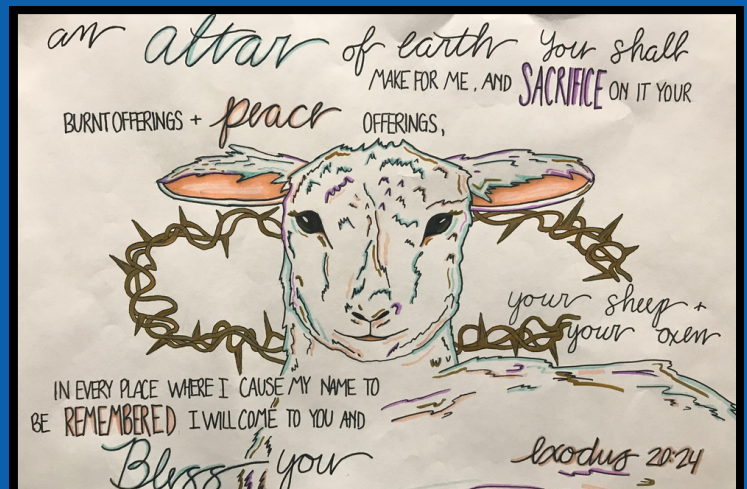 an altar of earth you shall
MAKE FOR ME, AND SACRIFICE ON IT YOUR
BURNT OFFERINGS + peace OFFERINGS,
your sheep +
your oxen
IN EVERY PLACE WHERE I CAUSE MY NAME TO
BE REMEMBERED I WILL COME TO YOU AND
Bless you
Exodus 20:24